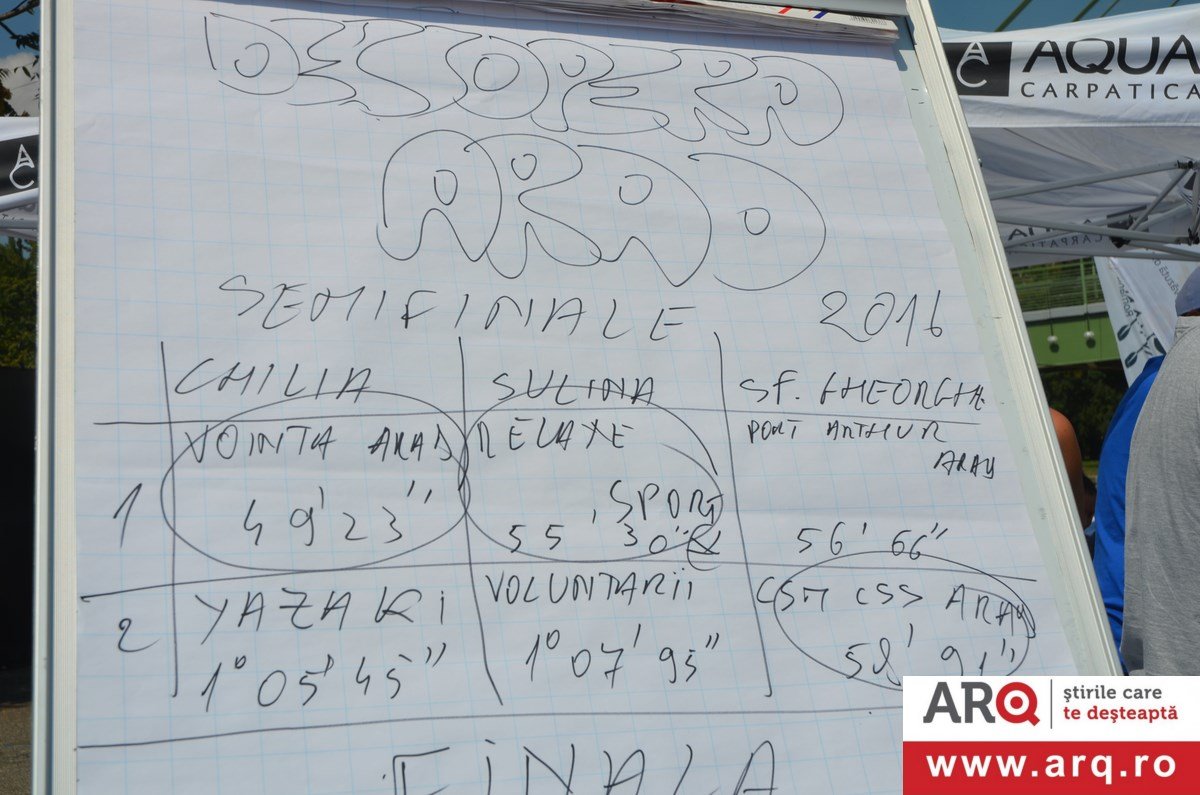 DESCOPERA
ARAD
SEMIFINALE 2016
CHILIA SULINA SF. GHEORGHE
1 VOINTA ARAD 49' 23"
RELAXE SPORT 55' 30"
PORT ARTHUR ARAD 56' 66"
2 YAZAKI 1° 05' 45"
VOLUNTARII 1° 07' 95"
CSM CSS ARAD 58' 91"
FINALA
AC AQUA
CARPATICA
AC
CARPATIC
ARQ știrile care
te deșteaptă
www.arq.ro